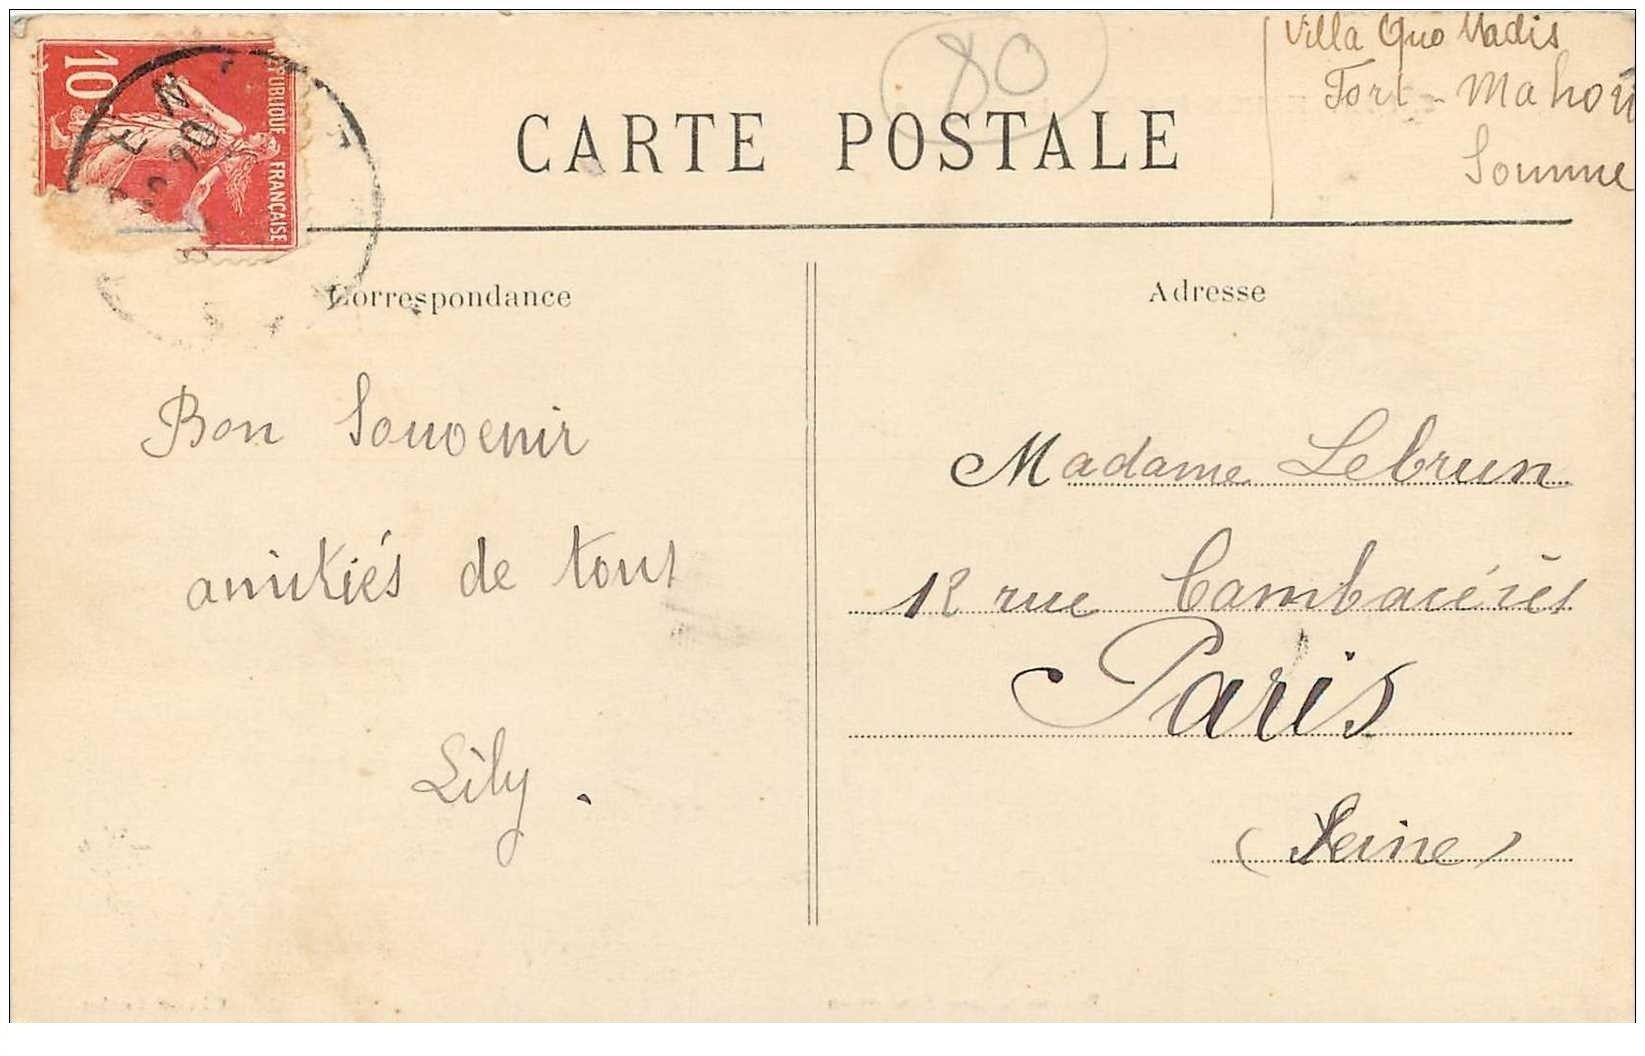 10
RÉPUBLIQUE FRANÇAISE
80
Villa Quo Vadis
Fort-Mahon
Somme
CARTE POSTALE
Correspondance
Bon Souvenir
amitiés de tous
Lily.
Adresse
Madame Lebrun
12 rue Cambacérès
Paris
(Seine)